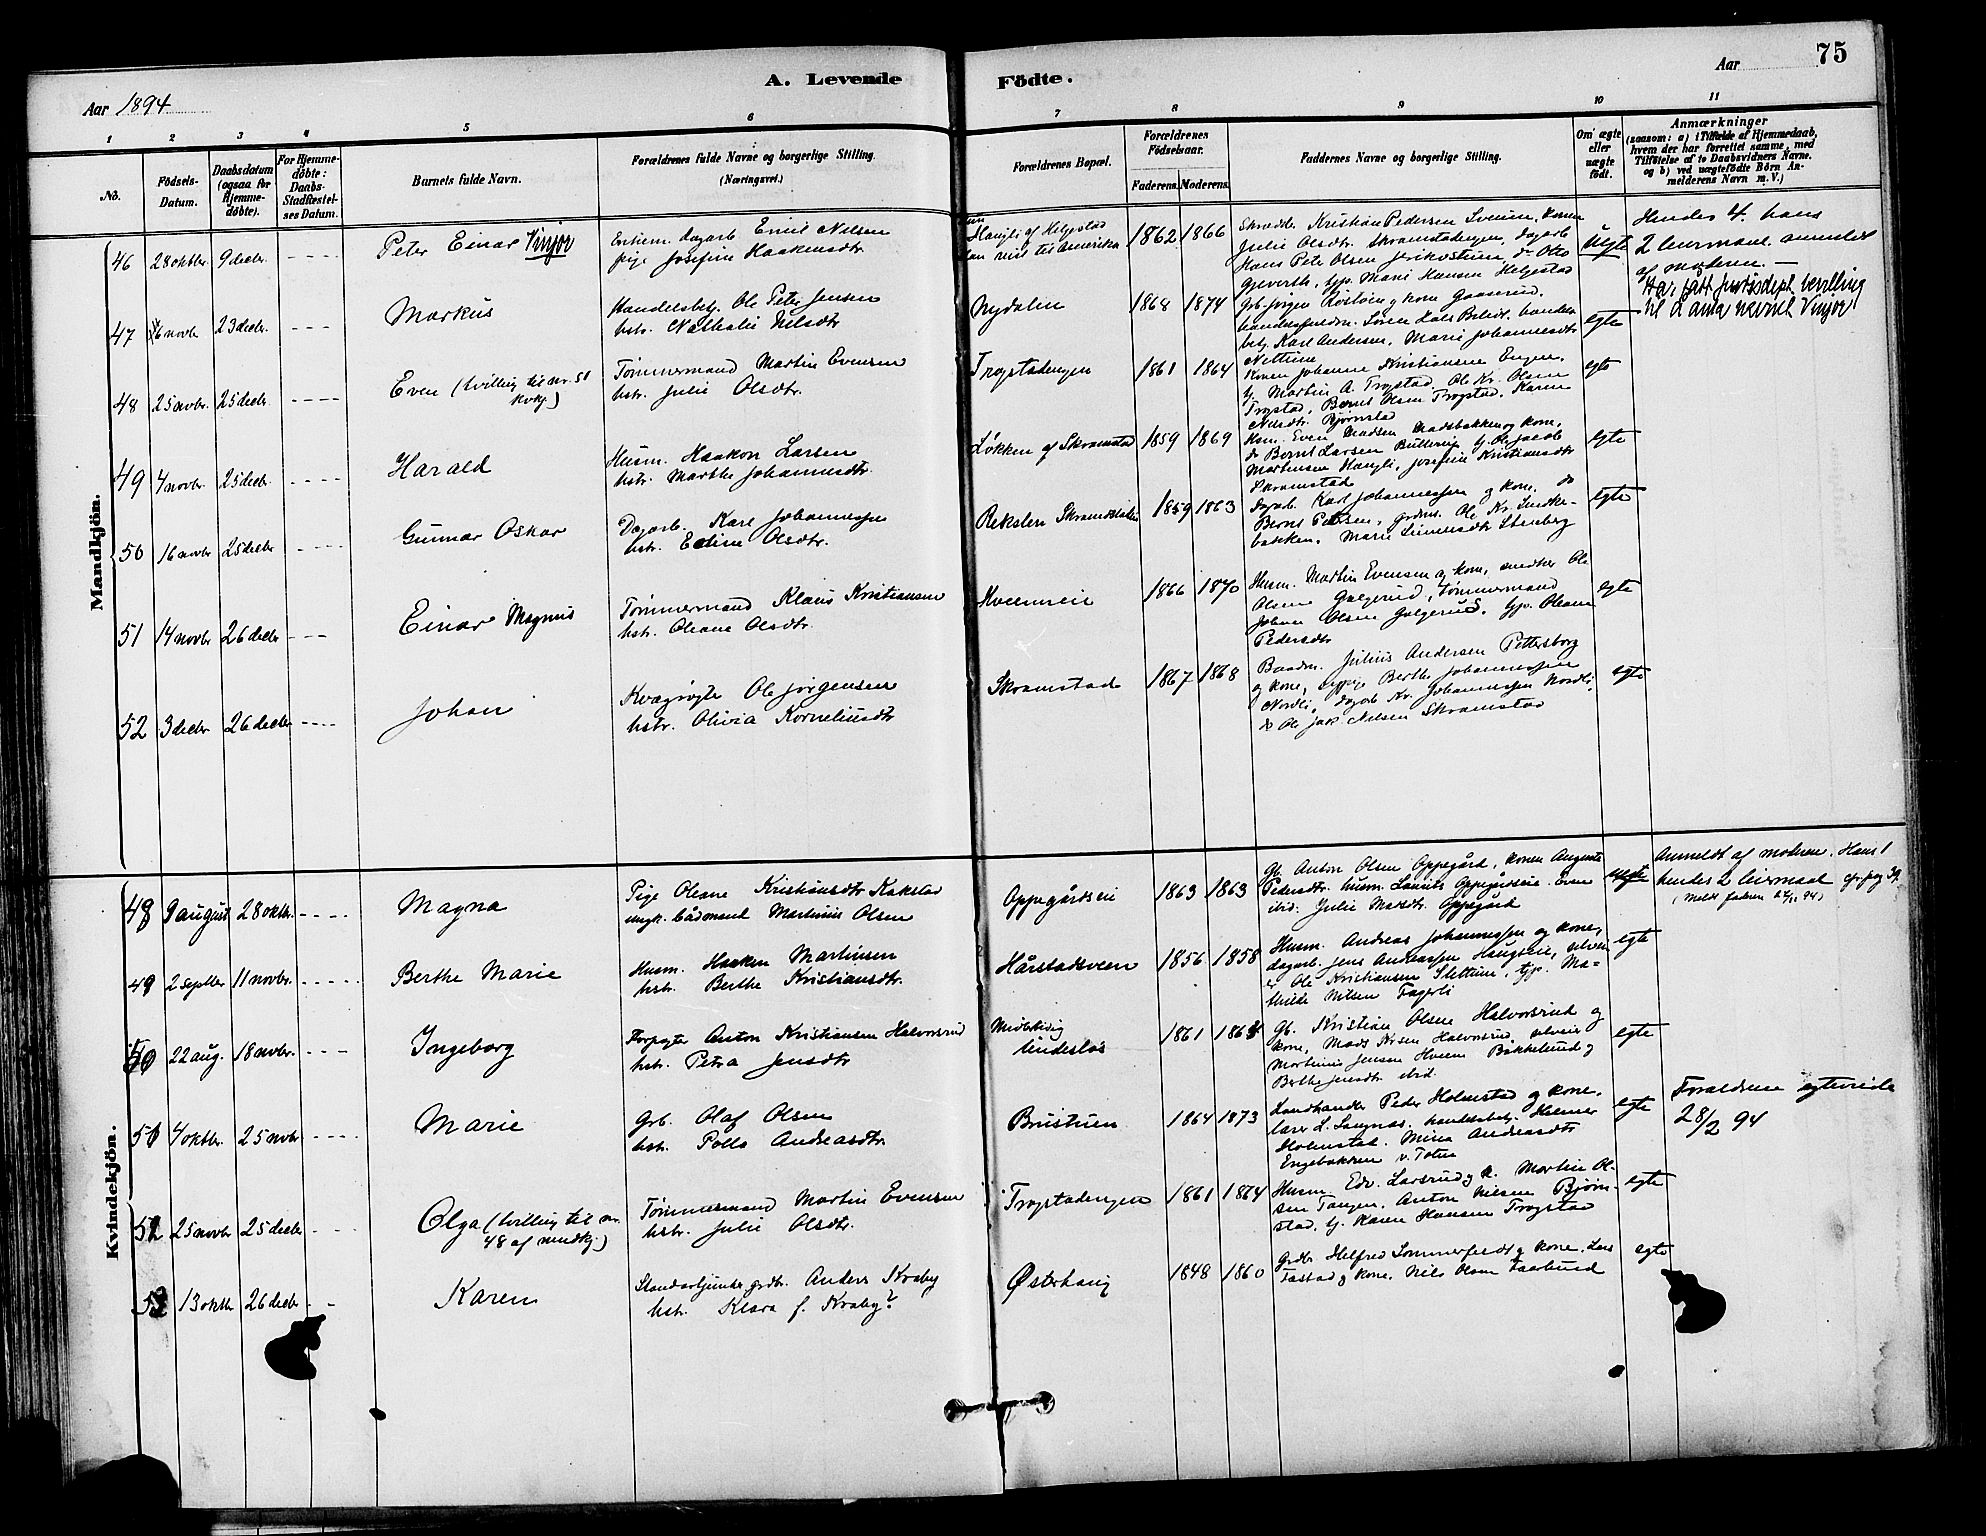 75
A. Levende Födte.
Aar 1894
Aar
1 2 3 4 5 6 7 8 9 10 11
No.
Födsels-Datum.
Daabsdatum (ogsaa for Hjemme-döbte).
For Hjemme-döbte: Daabs-Stadfæstel-ses Datum.
Barnets fulde Navn.
Forældrenes fulde Navne og borgerlige Stilling.
(Næringsvei.)
Forældrenes Bopæl.
Forældrenes Födselsaar.
Faderens. Moderens.
Faddernes Navne og borgerlige Stilling.
Om ægte eller uægte födt.
Anmærkninger
(saasom: a) i Tilfælde af Hjemmedaab, hvem der har forrettet samme, med Tilföielse af to Daabsvidners Navne. og b) ved uægtefödte Börn An-melderens Navn m. V.)
Mandkjön.
46 28 oktbr. 9 decbr. Peter Einar Vinjor
Enkem. dagarb. Emil Nilsen
pige Josefine Haakensdtr.
Haugli af Helgestad
1862 1866
Skrædder Kristian Pedersen Sveum, konen
Julie Olsdtr. Skramstadengen, dagarb.
Hans Peter Olsen
Gjeverth, tjp. Marie Hansen Helgestad
uegte
Hendes 4. hans
2 leiermaal. anmeldt
af moderen.
Har fått Justisdept. bevilling
til å anta navnet Vinjor
47 6 novbr. 23 decbr. Markus
Handelsbetj. Ole Peter Jensen
hstr. Nathalie Nilsdtr.
Nydalen
1868 1874
betj. Karl Andersen, Marie Johannesdtr
egte
48 25 novbr. 25 decbr. Even (tvilling til nr. 51 kvkj.)
Tømmermand Martin Evensen
hstr. Julie Olsdtr.
Trogstadengen
1861 1864
Konen Johanne Kristiansen Engen.
tj. Martin A. Trogstad. Ole Kr. Olsen
Trogstad, Bernt Olsen Trogstad, Karen
Nilsdtr. Bjørnstad
egte
49 4 novbr. 25 decbr. Harald
Husm. Haakon Larsen
hstr. Marthe Johannesdtr.
Løkken af Skramstad
1859 1869
Husm. Even Madsen Madsbakken og kone,
do Bernt Larsen Bullerup tj. Ole Jacob
Martinsen Haugli, Josefine Kristiansdtr
Skramstad
egte
50 16 novbr. 25 decbr. Gunnar Oskar
Dagarb. Karl Johannessen
hstr. Edine Olsdtr.
1859 1863
Dagarb. Karl Johannessen og kone, do
Bernt Petersen, grdms. Ole Kr. Lindke-
bakken, Marie Simensdtr Stenberg
egte
51 14 novbr. 26 decbr. Einar Magnus
Tømmermand Klaus Kristiansen
hstr. Oleane Olsdtr.
Hveemseie
1866 1870
Husm. Martin Evensen og kone, snedker Ole
Olsen Galgerud, tømmermand
Johan Olsen Galgerud, tjp. Oleane
Pedersdtr
egte
52 3 decbr. 26 decbr. Johan
Kvægrøgter Ole Jørgensen
hstr. Olivia Korneliusdtr
Skramstad
1867 1868
Baadm. Julius Andersen Pettersborg
og kone, Berthe Johannessen
Nordli, dagarb. Kr. Johannessen Nordli,
do Ole Jak. Nilsen Skramstad
egte
Kvindekjön.
48 9 august 28 oktbr. Magna
Pige Oleane Kristiansdtr Kakstad
ungk. bådmand Martinius Olsen
Oppegårdseie
1863 1863
Gb. Anton Olsen Oppegård, konen Auguste
Pedersdtr. husm. Laurits Oppegårdseie. Even
ibid. Julie Madsdtr. Oppegård
uegte
Anmeldt af moderen. Hans 1
hendes 2 leiermaal
49 2 septbr 11 novbr. Berthe Marie
Husm. Haaken Martinsen
hstr. Berthe Kristiansdtr.
Hårstadsveen
1856 1858
Husm. Andreas Johannessen og kone,
dagarb. Jens Andreassen Haugseie, selvei
er Ole Kristiansen Slettum, tjp. Ma-
thilde Nilsen Fagerli
egte
50 22 aug. 18 novbr. Ingeborg
Forpagter Anton Kristiansen Halvorsrud
hstr. Petra Jensdtr
Midlertidig
Lindeslos
1861 1864
Gb. Kristian Olsen Halvorsrud og
kone, Mads Nilsen Halvorsrud, selveier
Martinius Jensen Hveem Bakkelund og
Berthe Jensdtr. ibid.
egte
51 4 oktbr. 25 novbr Marie
Grb. Olaf Olsen
hstr. Polla Andreasdtr.
Bruistuen
1864 1873
Landhandler Peder Holmstad og kone.
lærer L. Langnæs, handelsbetj. Helmer
Holmstad. Mina Andreasdtr
Engebakken v. Toten
egte
Forældrene egteviede
28/2 94
52 25 novbr 25 decbr Olga (tvilling til nr. 48 af mndkj.)
Tømmermand Martin Evensen
hstr. Julie Olsdtr.
Trogstadengen
1861 1864
Husm. Edv. Larsrud og k. Martin Ol-
sen Tangen, Anton Nilsen Bjørn-
stad, tj. Karen Hansen Trogstad
egte
53 13 oktbr 26 decbr Karen
Standartjunker grdbr. Anders Kraby
hstr. Klara f. Kraby?
Østerhaug
1848 1860
Grdbr. Helfred Sommerfeldt og kone, Lars
Fastad og kone, Nils Olsen Faalund
egte